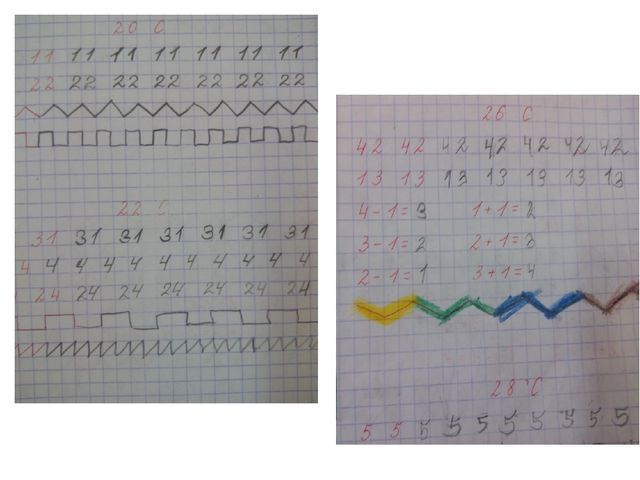 20 С
11 11 11 11 11 11 11
22 22 22 22 22 22 22
22 С
31 31 31 31 31 31 31
4 4 4 4 4 4 4 4 4 4 4
24 24 24 24 24 24 24
26 С
42 42 42 42 42 42 42
13 13 13 13 13 13 13
4-1=3 1+1=2
3-1=2 2+1=3
2-1=1 3+1=4
28 С
5 5 5 5 5 5 5 5 5 5